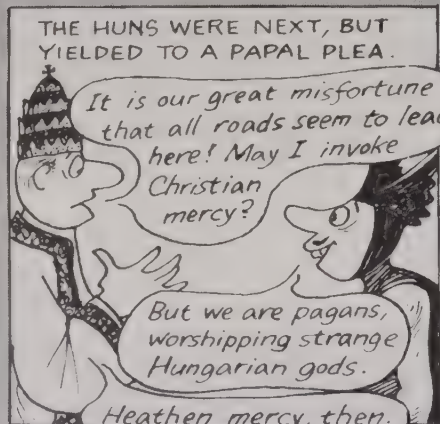 THE HUNS WERE NEXT, BUT
YIELDED TO A PAPAL PLEA.
It is our great misfortune
that all roads seem to lea
here! May I invoke
Christian
mercy?
But we are pagans,
worshipping strange
Hungarian gods.
Heathen mercy, then.